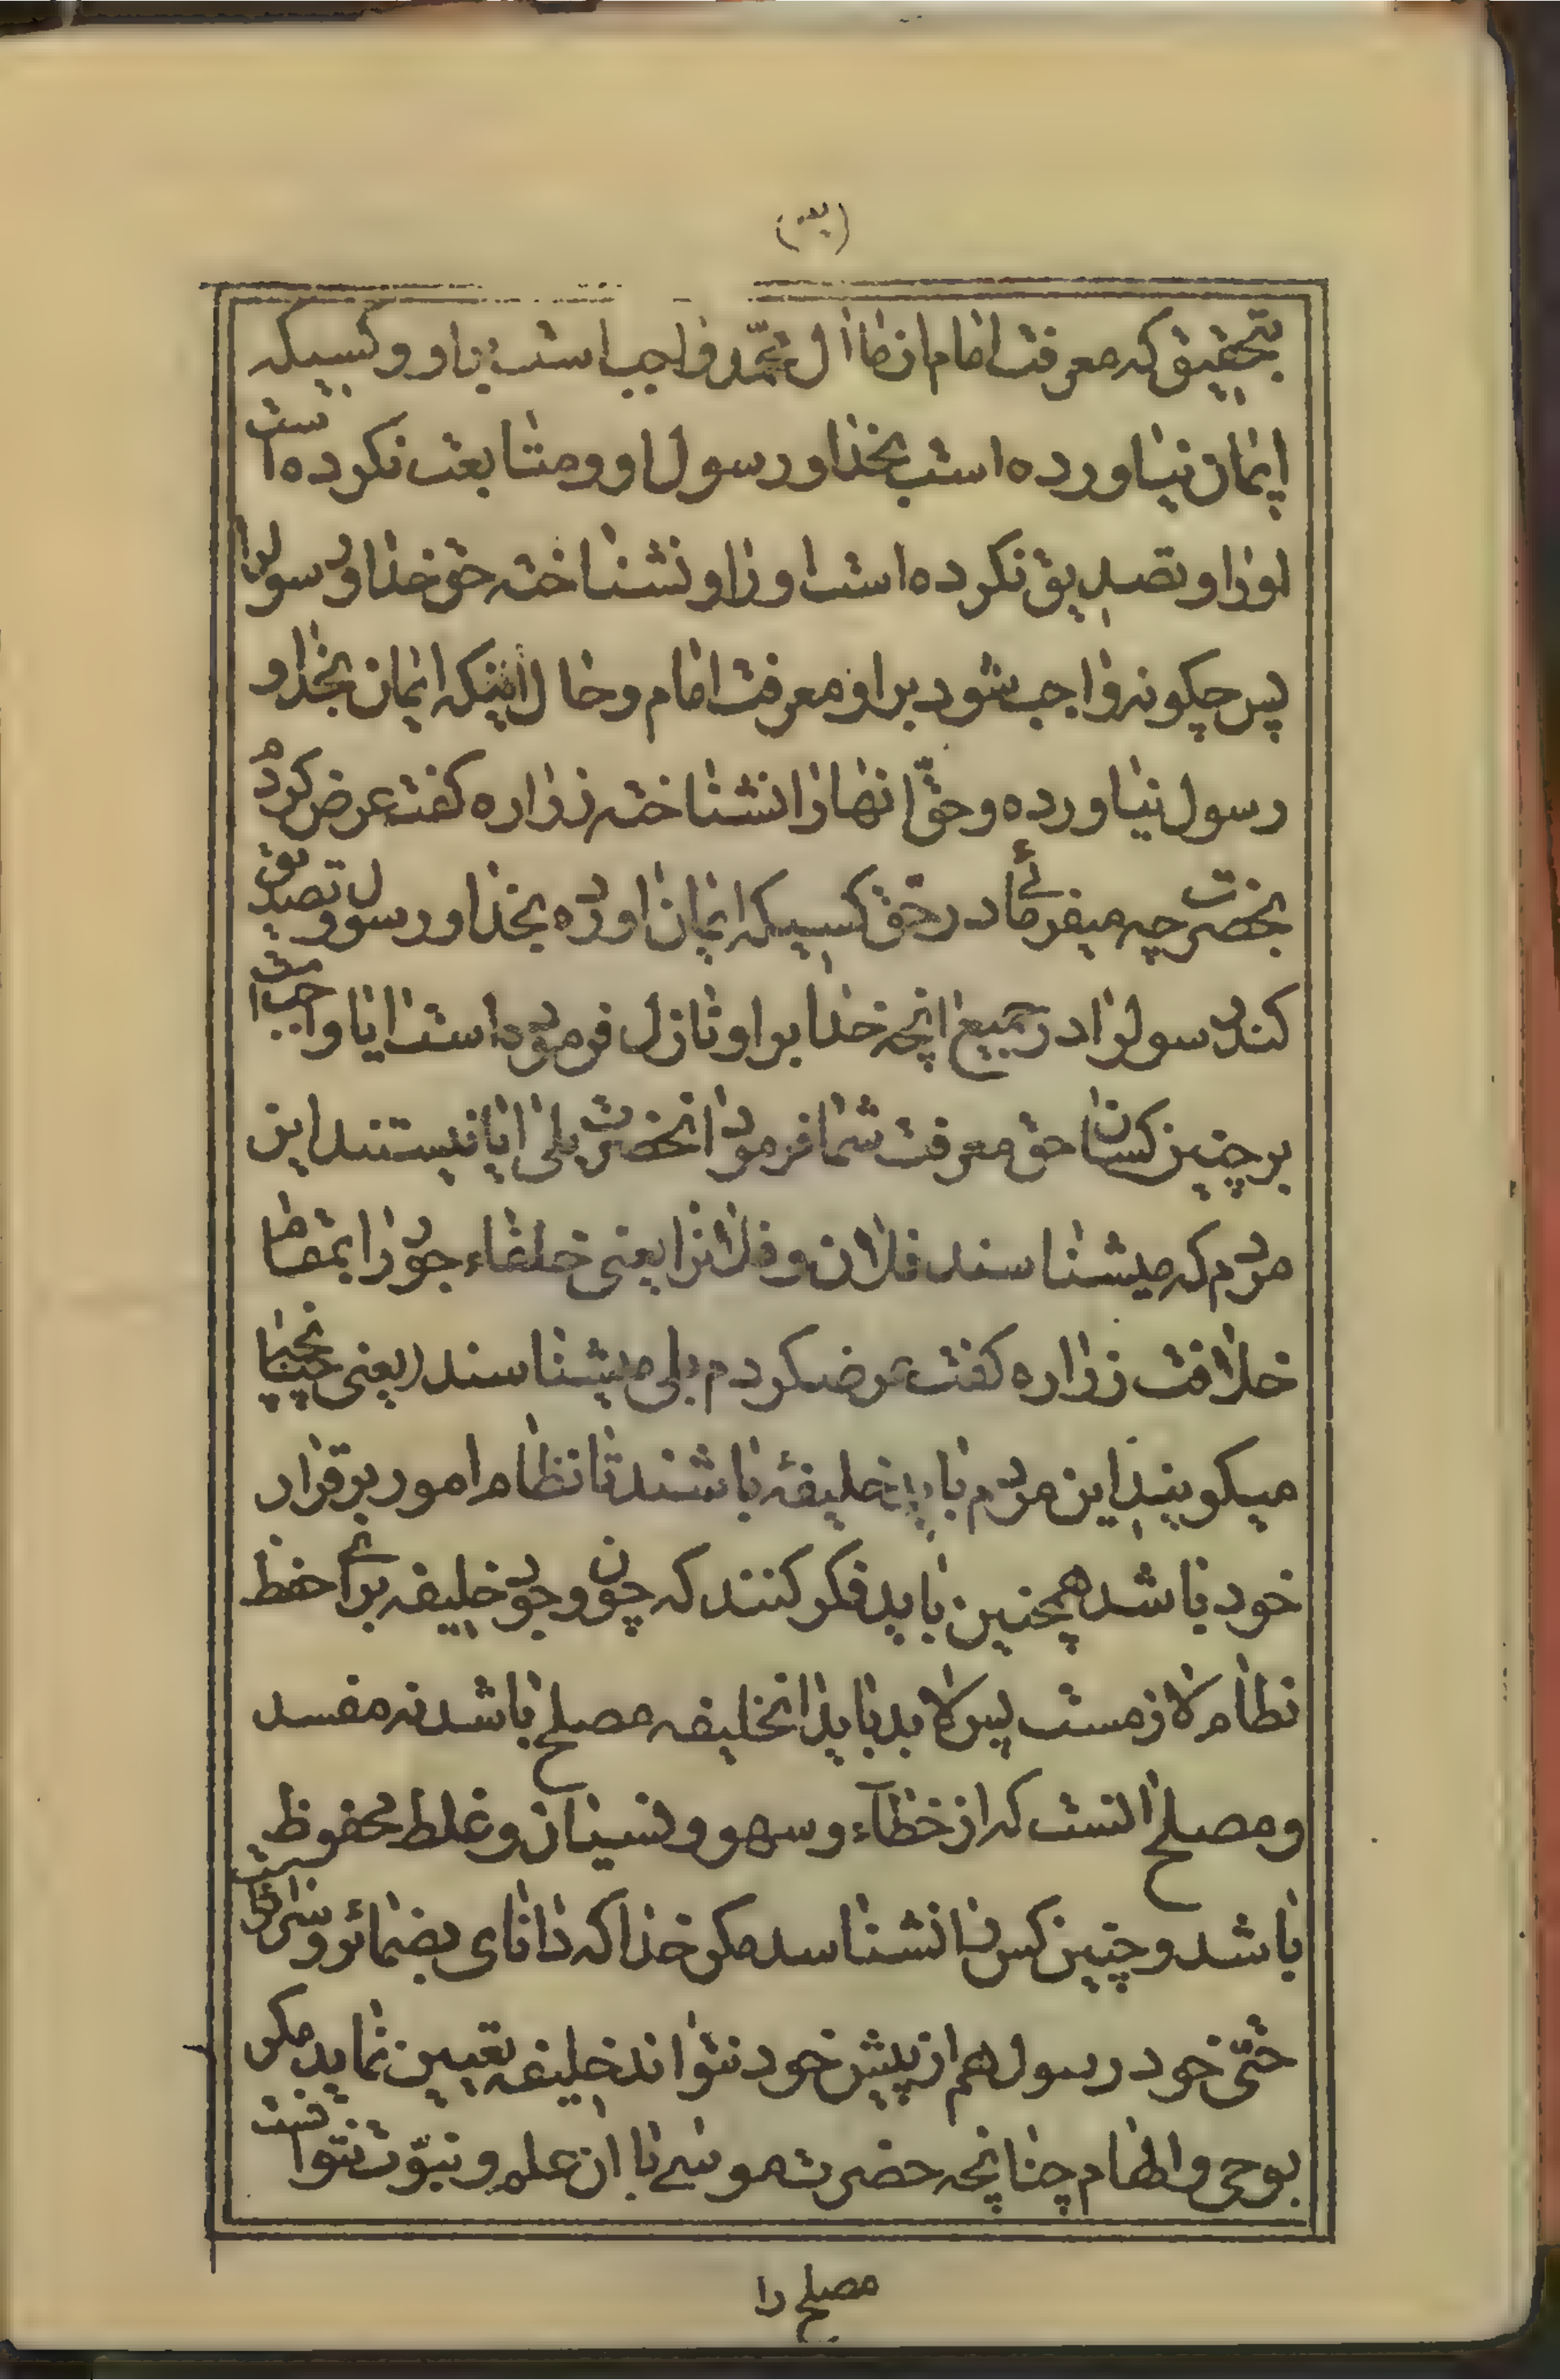 بتحقیق که معرفت امام از ما ال محمّد واجب است باو و کسیکه
ایمان نیاورده است بخدا و رسول او و متابعت نکرده است
اورا و تصدیق نکرده است اورا و نشناخته حق خدا و رسولرا
پس چکونه واجب شود بر او معرفت امام و حال اینکه ایمان بخدا و
رسول نیاورده و حقّ انها را نشناخته زراره کفت عرض کردم
بحضرت چه میفرمائے در حق کسیکه ایمان اورده بخدا و رسول و تصدیق
کند رسولرا در جمیع انچه خدا بر او نازل فرموده است ایا واجب است
بر چنین کسان حق معرفت شما فرمود انحضرت بلی ایا نیستند این
مردم که میشناسند فلان و فلانرا یعنی خلفاء جور را بمقام
خلافت زراره کفت عرضکردم بلی میشناسند (یعنی چنانچه
میکویند این مردم باید خلیفهٔ باشند تا نظام امور برقرار
خود باشد همچنین باید فکر کنند که چون وجود خلیفه برای حفظ
نظام لازمست پس لابد باید انخلیفه مصلح باشد نه مفسد
و مصلح انست که از خطاء و سهو و نسیان و غلط محفوظ
باشد و چنین کس را نشناسد مکر خدا که دانای بضمائر و سرائر است
حتّی خود رسول هم از پیش خود نتواند خلیفه تعیین نماید مکر
بوحی و الهام چنانچه حضرت موسے با ان علم و نبوّت نتوانست
مصلح را